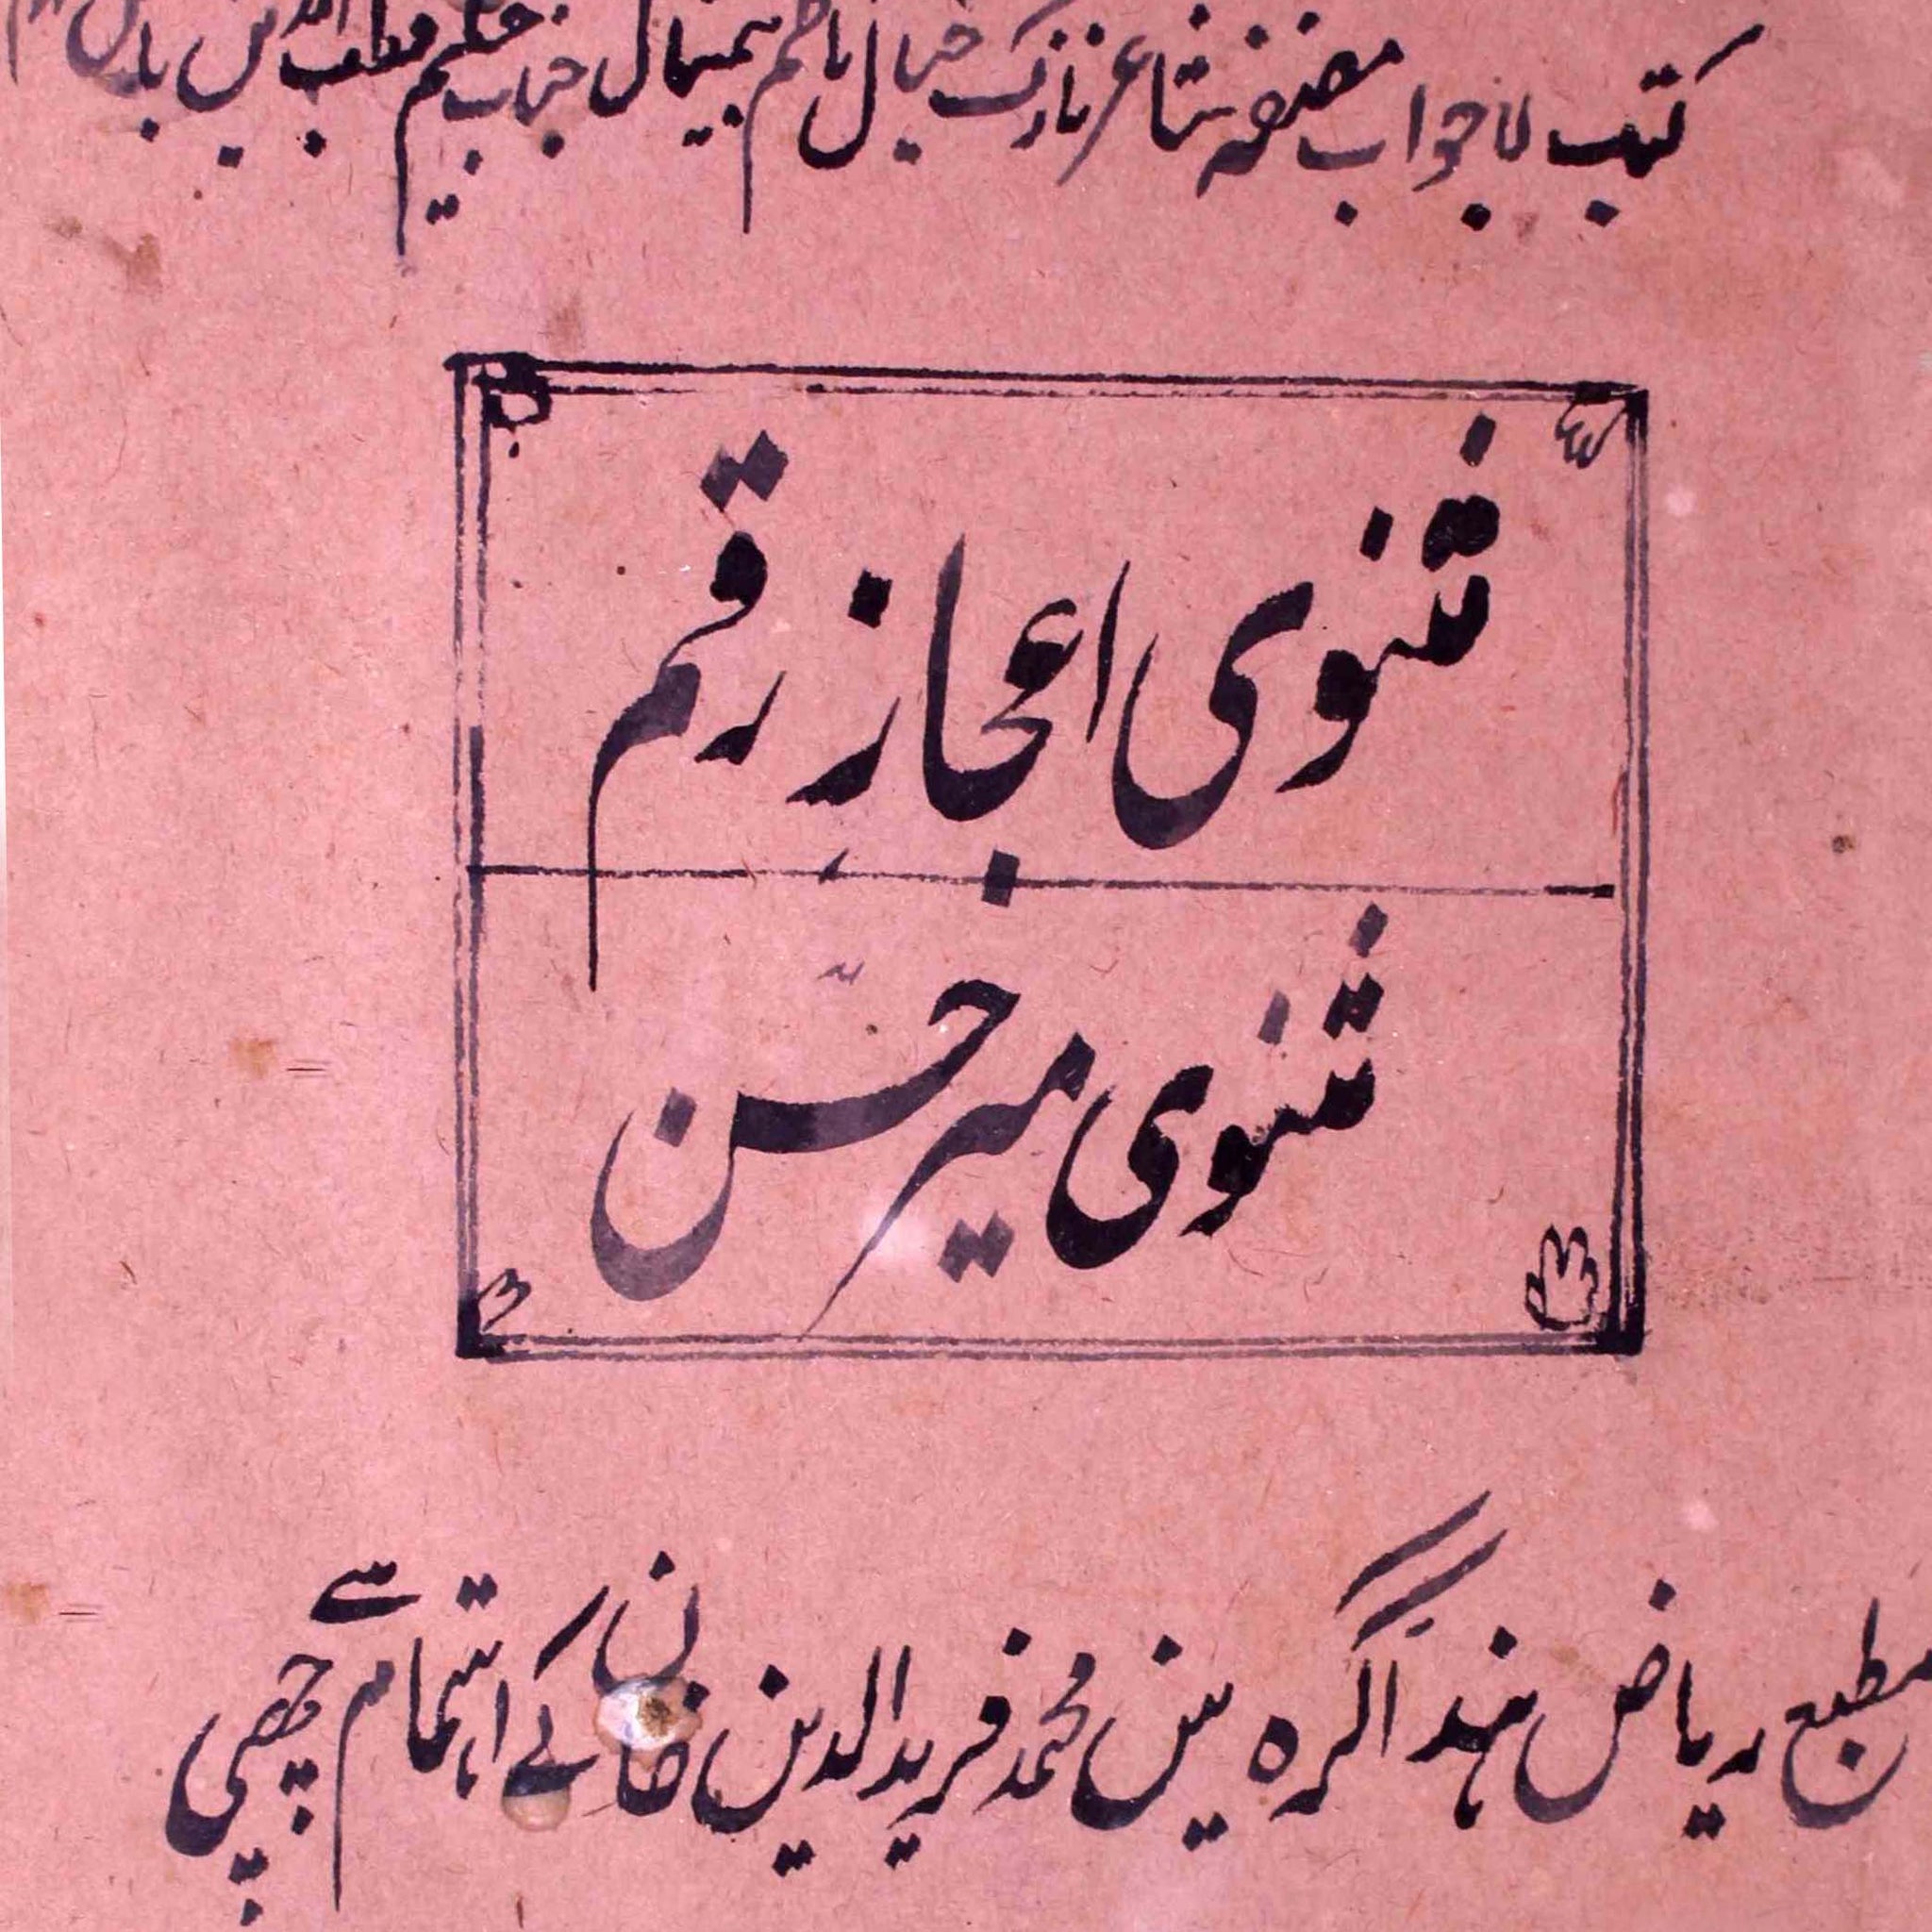 کتاب لاجواب مصنفہ شاعر نازک خیال ناظم بیمثال جناب حکیم قطب الدین
مثنوی اعجاز رقم
مثنوی میر حسن
مطبع ریاض ہند آگرہ میں محمد فرید الدین خان کے اہتمام سے چھپی